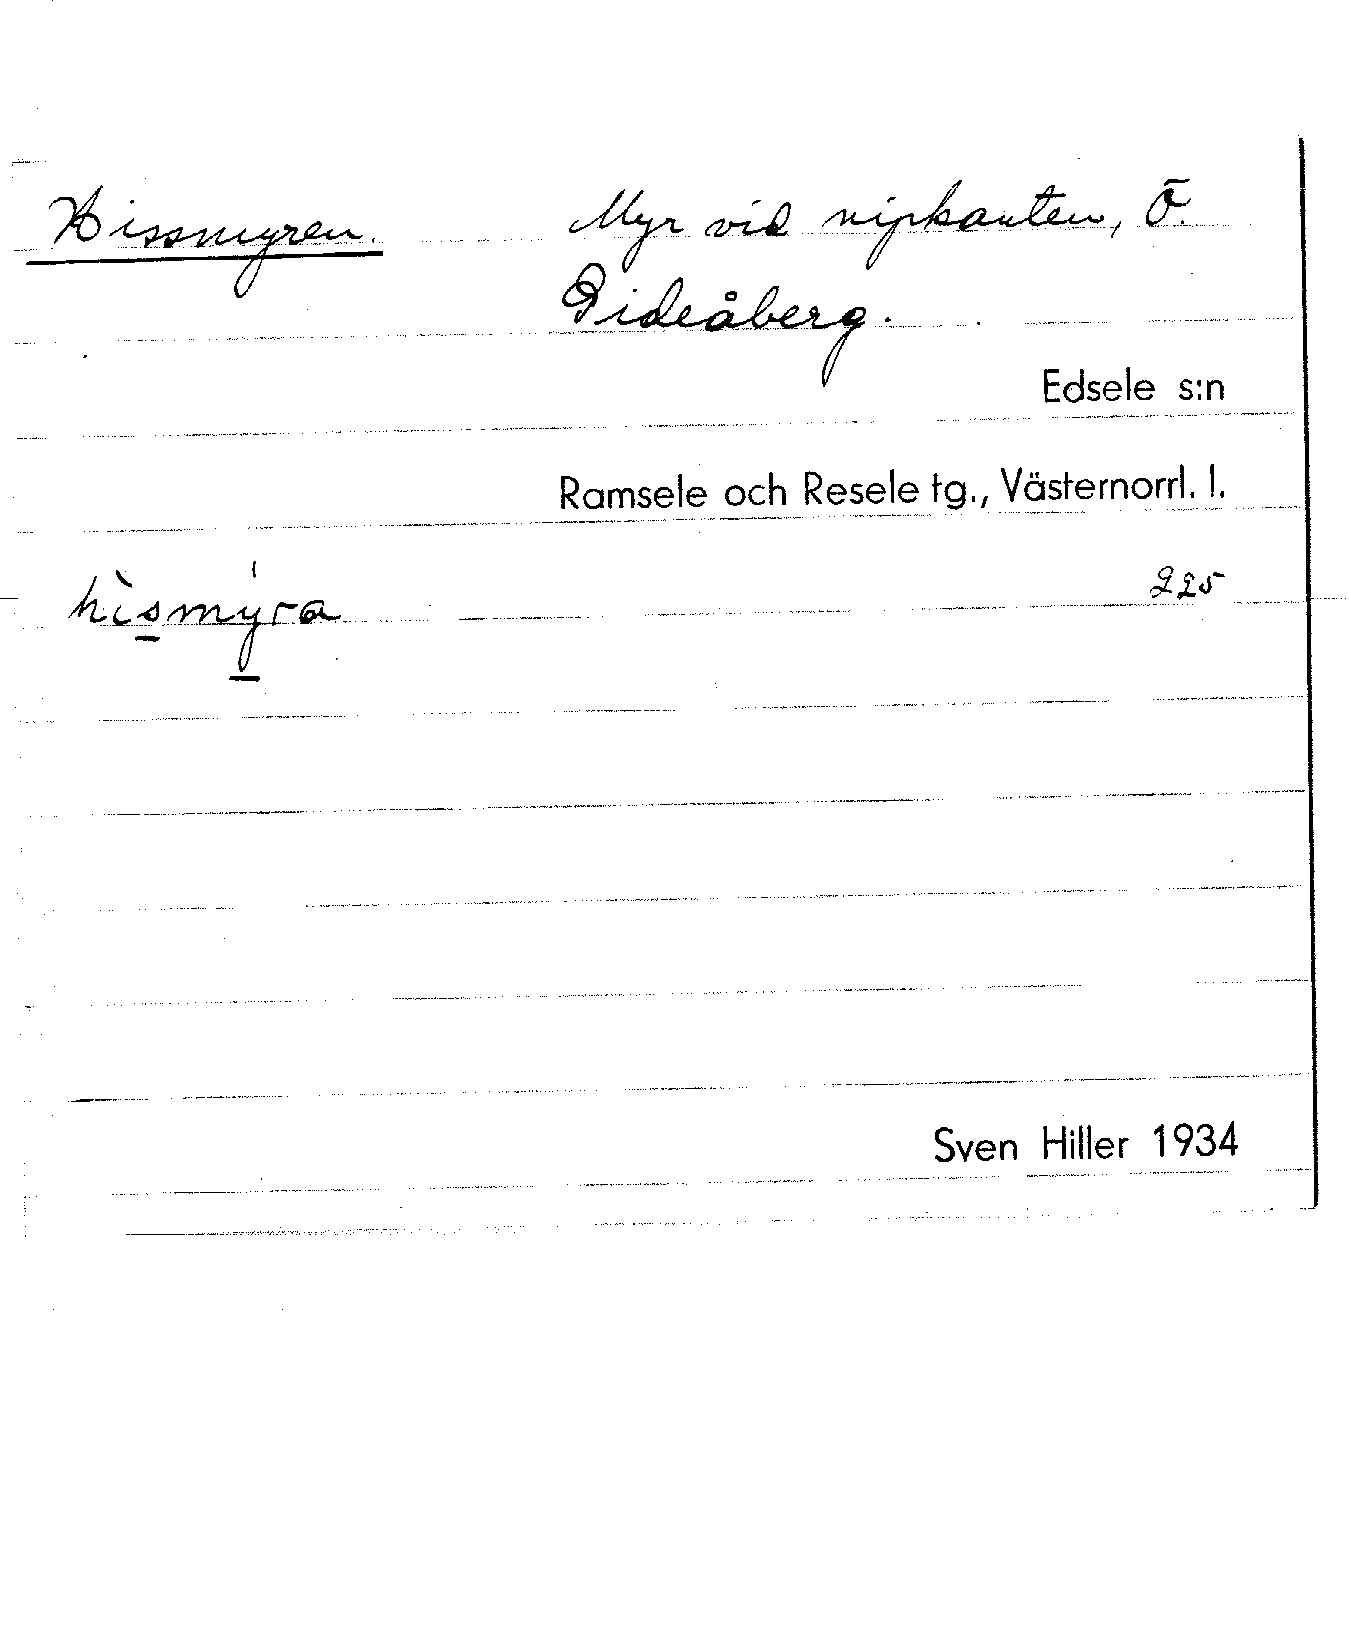 Hissmyren. Myr vid nipkanten, Ö.
Gideåberg.
Edsele s:n
Ramsele och Resele tg., Västernorrl. l.
hìsmýra 225
Sven Hiller 1934